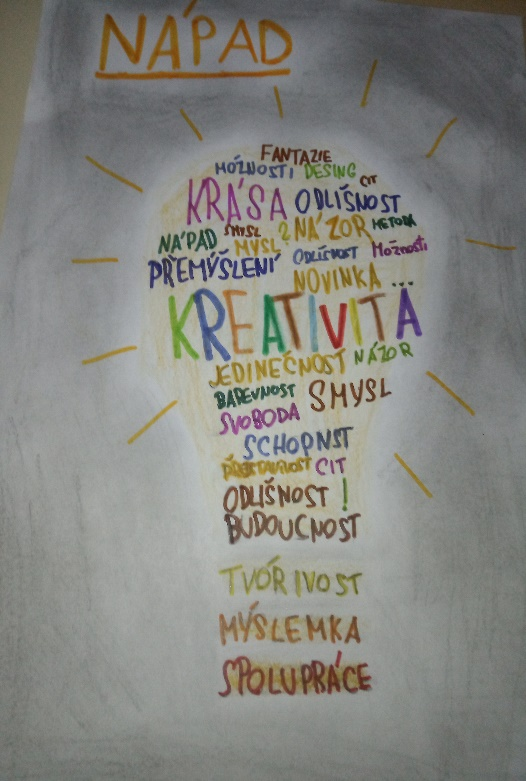 NÁPAD
FANTAZIE
MOŽNOSTI DESING CIT
KRÁSA ODLIŠNOST
NÁPAD SMYSL ? NÁZOR METODA
MYSL ODLIŠNOST MOŽNOSTI
PŘEMÝŠLENÍ NOVINKA ...
KREATIVITA
JEDINEČNOST NÁZOR
BAREVNOST SMYSL
SVOBODA
SCHOPNST
CIT
ODLIŠNOST !
BUDOUCNOST
TVOŘIVOST
MYŠLEMKA
SPOLUPRÁCE